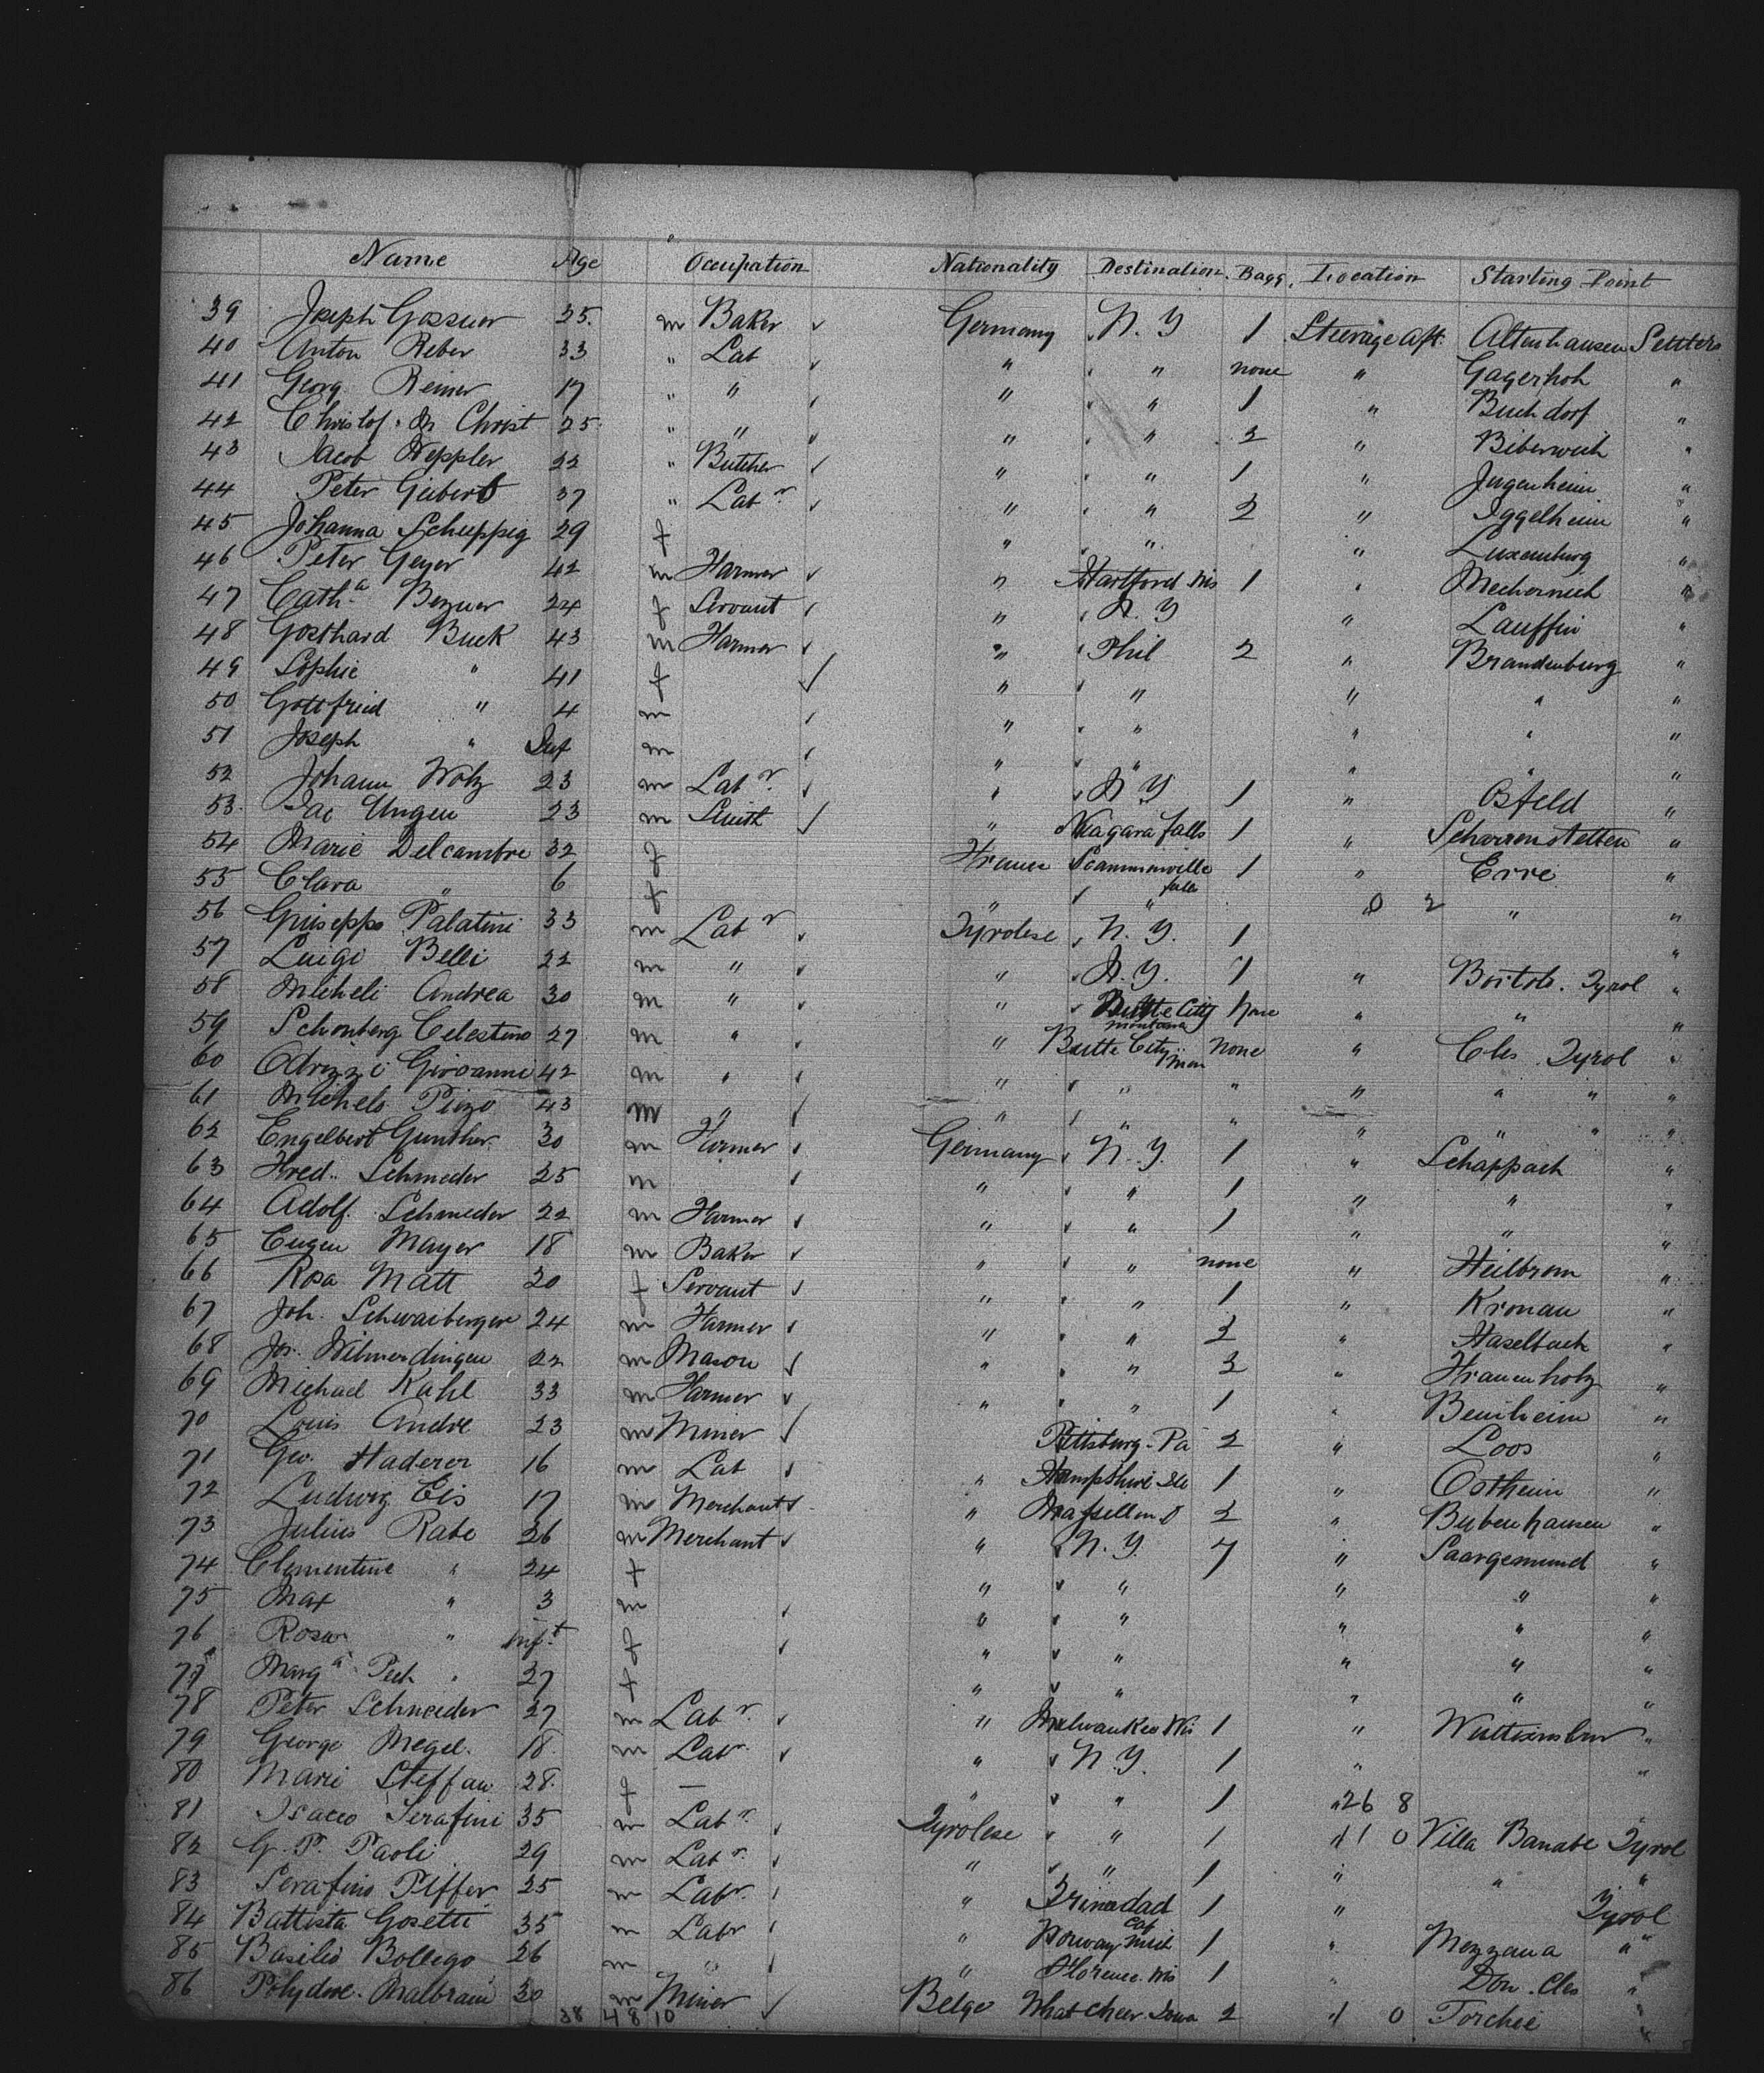 Name Age Occupation Nationality Destination Bagg. Location Starting Point
39 Joseph Gossner 25. m Baker Germany N. Y 1 Steerage Aft. Altenhausen Settlers
40 Anton Reber 33 " Lab " " none " Gagerhoh "
41 Georg Reiner 17 " " " " 1 " Buchdorf "
42 Christof. Christ 25 " " " " 2 " "
43 Jacob Keppler 22 " Butcher " " 1 " Jugenheim "
44 Peter Geibert 37 " Labr " " 2 " Iggelheim "
45 Johanna Scheppig 29 f " " " Luxemburg "
46 Peter Geyer 42 m Farmer " Hartford Wis 1 " Mechernich "
47 Catha 24 f Servant " N. Y " Lauffin "
48 Gotthard Buck 43 m Farmer " Phil 2 " Brandenburg "
49 Sophie " 41 f " " " " "
50 Gottfried " 4 m " " " " "
51 Joseph " Inf m " " " " "
52 Johann Wolz 23 m Labr " N Y 1 " Osfeld "
53. Jac Ungeu 23 m Smith " Niagara falls 1 " Scharrenstetten "
54 Marie Delcambre 32 f France Scammonville 1 " Erre "
55 Clara " 6 f " " falls 0 2 " "
56 Guiseppo Palatini 33 m Labr Tyrolese N. Y. 1 "
57 Luigi Belli 22 m " " N. Y. 1 " Bortolo. Tyrol "
58 Micheli Andrea 30 m " " Butte City Montana None " " "
59 Schonberg Celestino 27 m " " Butte City Mon None " Cles Tyrol "
60 Giovanni 42 m " " " " " " " "
61 Michelo 43 m " " " " " " " "
62 Engelbert Gunther 30 m Farmer Germany N. Y. 1 " Schappach "
63 Fred. Schmeder 25 m " " 1 " " "
64 Adolf. Schmeder 22 m Farmer " " 1 " " "
65 Eugen Mayer 18 m Baker " " none " Heilbronn "
66 Rosa Matt 20 f Servant " " 1 " Kronau "
67 Joh. Schwaiberger 24 m Farmer " " 2 " Haselbach "
68 Jos. Wilmerdingen 22 m Mason " " 2 " Frauenholz "
69 Michael Kahl 33 m Farmer " " 1 " Bensheim "
70 Louis Andre 23 m Miner Pittsburg. Pa 2 " Loos "
71 Geo. Haderer 16 m Lab " Hampshire Ill 1 " Ostheim "
72 Ludwig Eis 17 m Merchant " Massillon O 2 " Bubenhausen "
73 Julius Rabe 26 m Merchant " N. Y. 7 " Saargemund "
74 Clementine " 24 f " " " " "
75 Max " 3 m " " " " "
76 Rosa " Inft f " " " " "
77 Marga Pech 27 f " " " " "
78 Peter Schneider 27 m Labr " Milwaukee Wis 1 " "
79 George Megel. 18. m Labr " N. Y. 1 " "
80 Marie Steffan 28. f — " " 1 " 26 8
81 Isacco Serafini 35 m Labr Tyrolese " 1 " 1 0 Villa Banale Tyrol
82 G. P. Paoli 29 m Labr " " 1 " " "
83 Serafino Piffer 25 m Labr. " Trinidad Col 1 " Tyrol
84 Battista Gosetti 35 m Labr " Norway Mich 1 " Mezzana "
85 Basilio Bollego 26 m " " Florence. Wis 1 " Don. Cles "
86 Polydore. Malbrain 30 m Miner Belge What Cheer Iowa 2 " 1 0 Torchie "
38 4 8 10